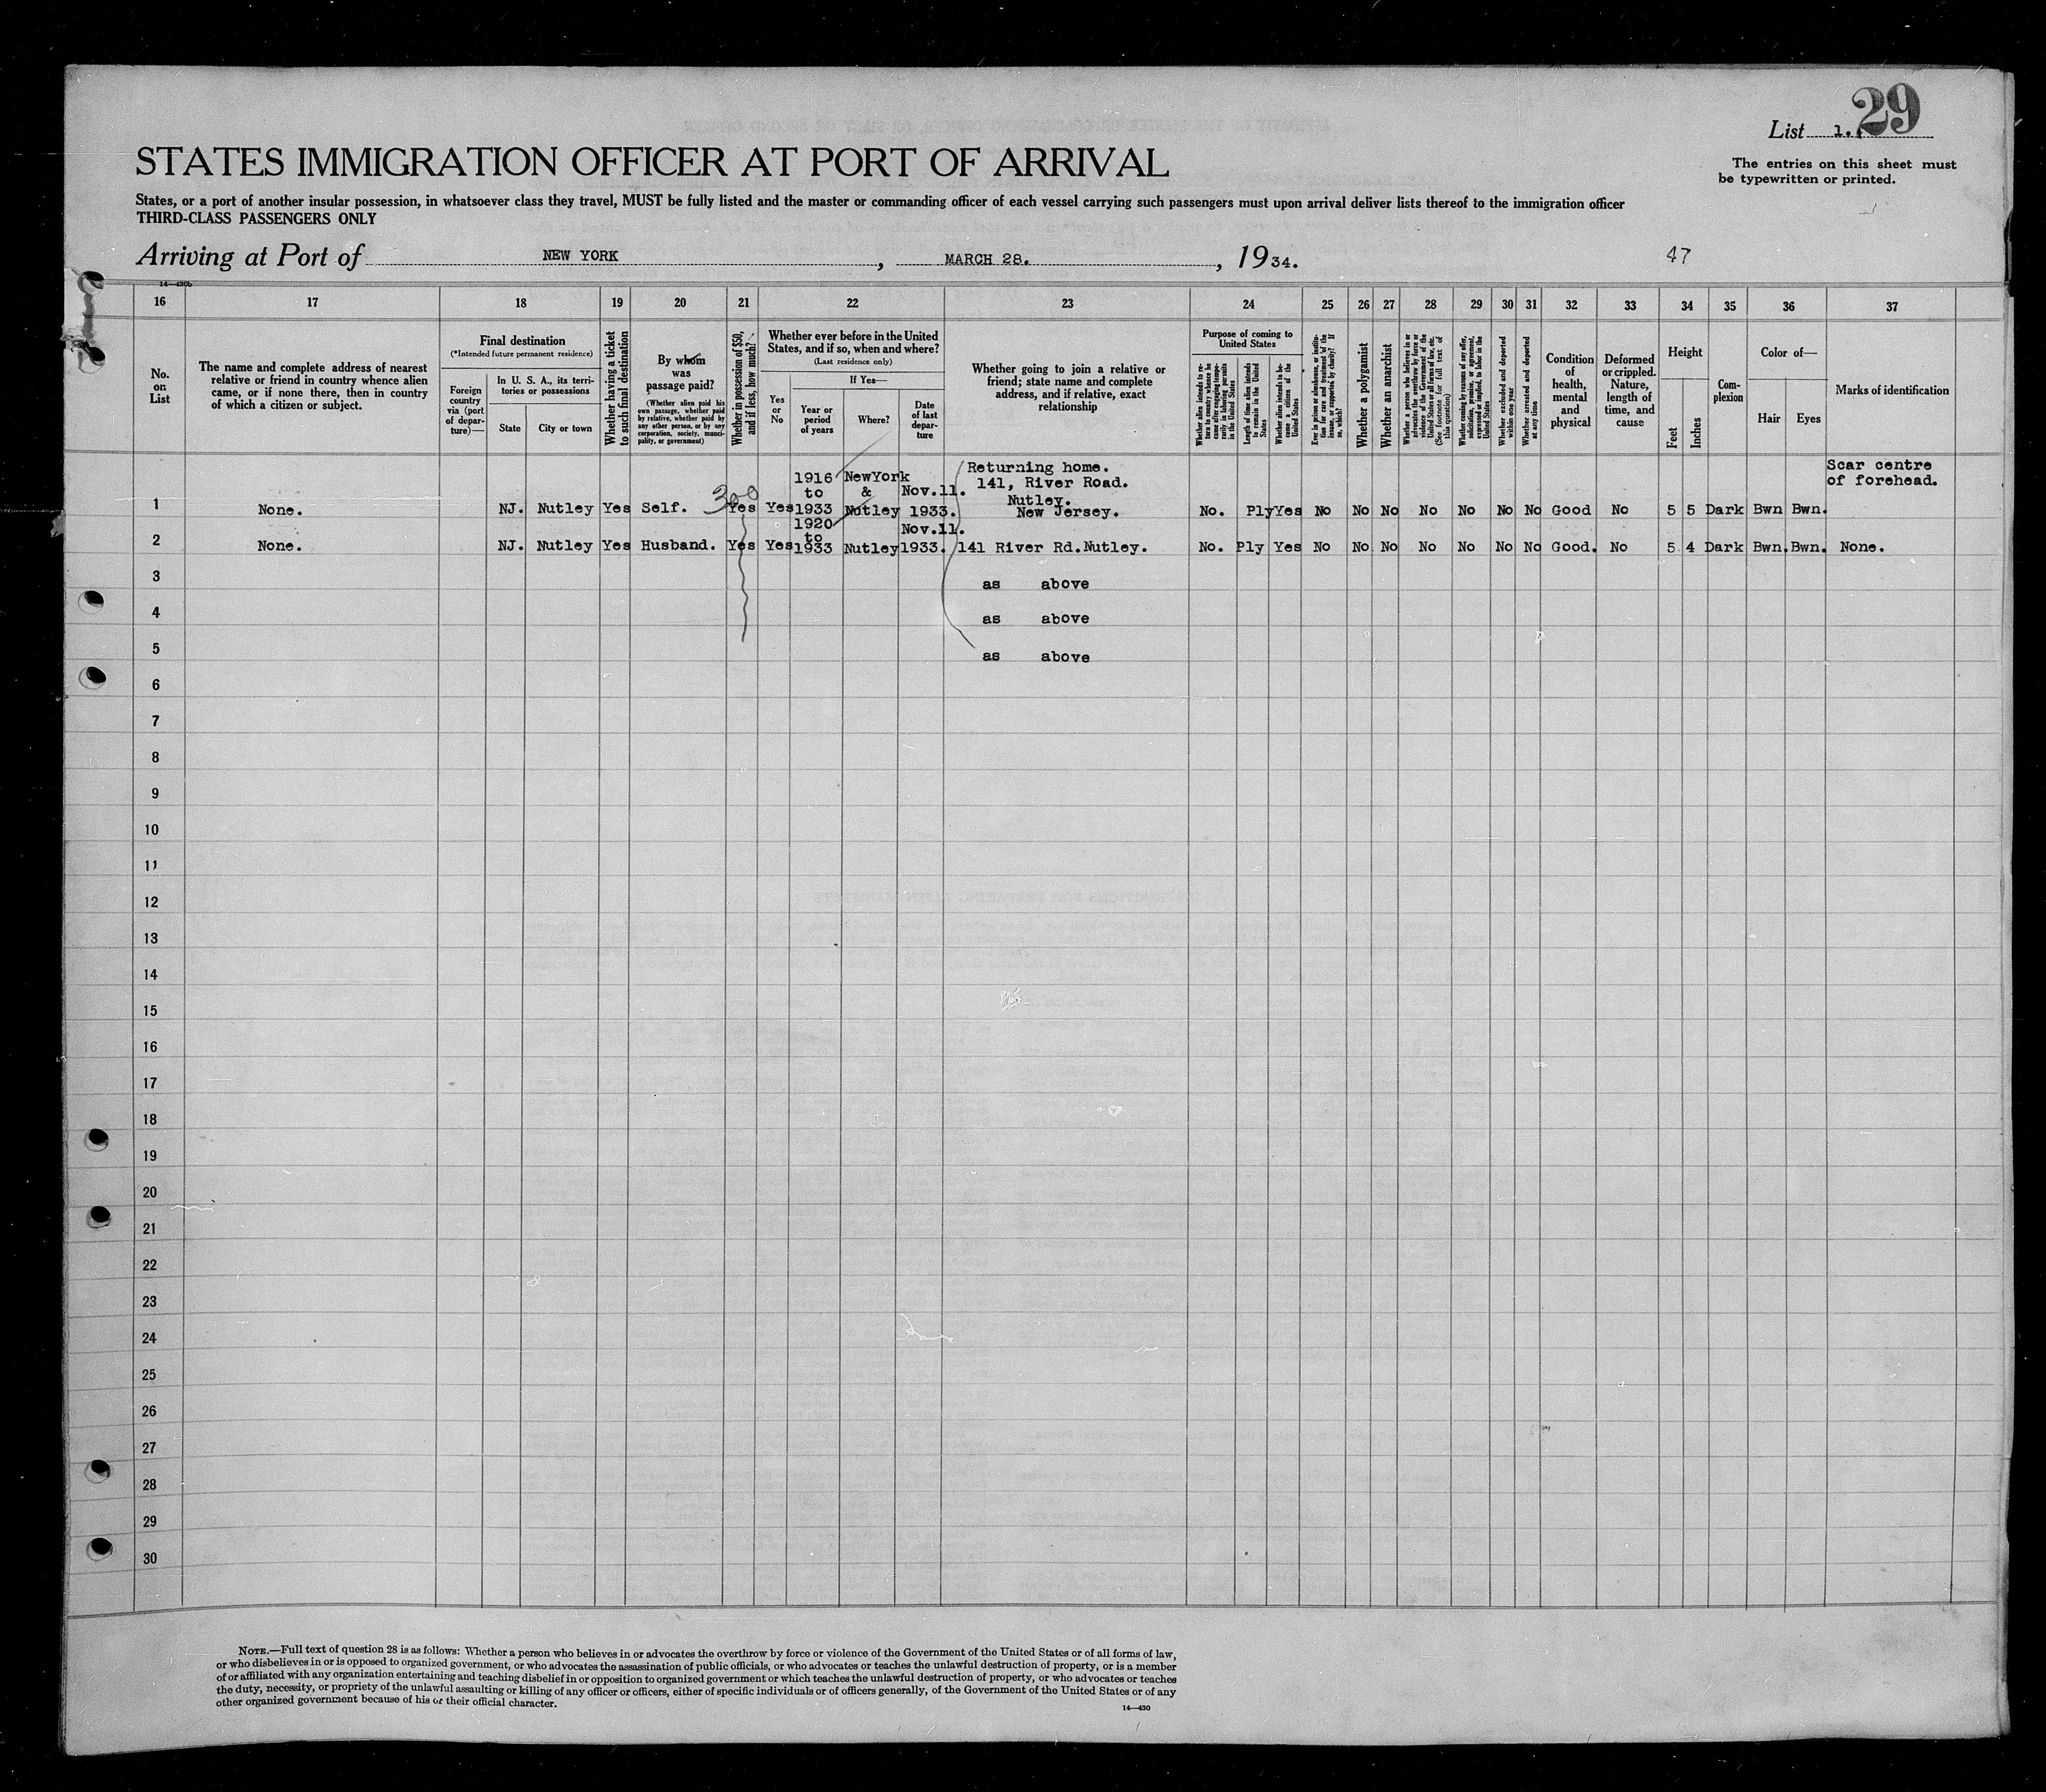 29
List 1.
The entries on this sheet must
be typewritten or printed.
STATES IMMIGRATION OFFICER AT PORT OF ARRIVAL
States, or a port of another insular possession, in whatsoever class they travel, MUST be fully listed and the master or commanding officer of each vessel carrying such passengers must upon arrival deliver lists thereof to the immigration officer
THIRD-CLASS PASSENGERS ONLY
Arriving at Port of NEW YORK, MARCH 28., 1934.
47
14—430b
16 17 18 19 20 21 22 23 24 25 26 27 28 29 30 31 32 33 34 35 36 37
No.
on
List
The name and complete address of nearest
relative or friend in country whence alien
came, or if none there, then in country
of which a citizen or subject.
Final destination
(*Intended future permanent residence)
Foreign
country
via (port
of depar-
ture)—
In U. S. A., its terri-
tories or possessions
State
City or town
Whether having a ticket
to such final destination
By whom
was
passage paid?
(Whether alien paid his
own passage, whether paid
by relative, whether paid by
any other person, or by any
corporation, society, munici-
pality, or government)
Whether in possession of $50,
and if less, how much?
Whether ever before in the United
States, and if so, when and where?
(Last residence only)
Yes
or
No
If Yes—
Year or
period
of years
Where?
Date
of last
depar-
ture
Whether going to join a relative or
friend; state name and complete
address, and if relative, exact
relationship
Purpose of coming to
United States
Whether alien intends to re-
turn to country whence he
came after engaging tempo-
rarily in laboring pursuits
in the United States
Length of time alien intends
to remain in the United
States
Whether alien intends to be-
come a citizen of the
United States
Ever in prison or almshouse, or institu-
tion for care and treatment of the
insane, or supported by charity? If
so, which?
Whether a polygamist
Whether an anarchist
Whether a person who believes in or
advocates the overthrow by force or
violence of the Government of the
United States or all forms of law, etc.
(See footnote for full text of
this question)
Whether coming by reasons of any offer,
solicitation, promise, or agreement,
expressed or implied, to labor in the
United States
Whether excluded and deported
within one year
Whether arrested and deported
at any time
Condition
of
health,
mental
and
physical
Deformed
or crippled.
Nature,
length of
time, and
cause
Height
Feet
Inches
Com-
plexion
Color of—
Hair
Eyes
Marks of identification
1 None. NJ. Nutley Yes Self. 300 Yes Yes 1916 to 1933 NewYork & Nutley Nov.11. 1933.
Returning home.
141, River Road.
Nutley.
New Jersey.
No. Ply Yes No No No No No No No Good No 5 5 Dark Bwn Bwn.
Scar centre
of forehead.
2 None. NJ. Nutley Yes Husband. Yes Yes 1920 to 1933 Nutley Nov.11. 1933. 141 River Rd.Nutley. No. Ply Yes No No No No No No No Good. No 5 4 Dark Bwn. Bwn. None.
3 as above
4 as above
5 as above
6
7
8
9
10
11
12
13
14
15
16
17
18
19
20
21
22
23
24
25
26
27
28
29
30
NOTE.—Full text of question 28 is as follows: Whether a person who believes in or advocates the overthrow by force or violence of the Government of the United States or of all forms of law,
or who disbelieves in or is opposed to organized government, or who advocates the assassination of public officials, or who advocates or teaches the unlawful destruction of property, or is a member
of or affiliated with any organization entertaining and teaching disbelief in or opposition to organized government or which teaches the unlawful destruction of property, or who advocates or teaches
the duty, necessity, or propriety of the unlawful assaulting or killing of any officer or officers, either of specific individuals or of officers generally, of the Government of the United States or of any
other organized government because of his or their official character.
14—430